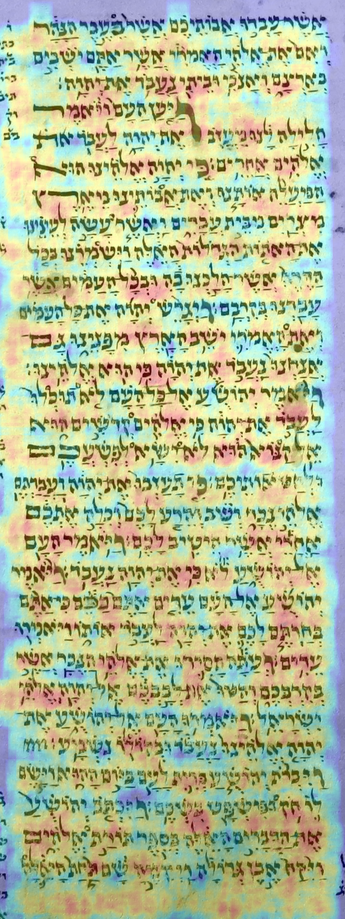 אשר עבדו אבותיכם אשר בעבר הנהר
ואם את אלהי האמרי אשר אתם ישבים
בארצם ואנכי וביתי נעבד את יהוה:
ויען העם ויאמר
חלילה לנו מעזב את יהוה לעבד
אלהים אחרים: כי יהוה אלהינו הוא
המעלה אותנו ואת אבותינו מארץ
מצרים מבית עבדים ואשר עשה לעינינו
את האתות הגדלות האלה וישמרנו בכל
הדרך אשר הלכנו בה ובכל העמים אשר
עברנו בקרבם: ויגרש יהוה את כל העמים
ואת האמרי ישב הארץ מפנינו גם
אנחנו נעבד את יהוה כי הוא אלהינו:
ויאמר יהושע אל העם לא תוכלו
לעבד את יהוה כי אלהים קדשים הוא
אל קנוא הוא לא ישא לפשעכם
כי תעזבו את יהוה ועבדתם
אלהי נכר ושב והרע לכם וכלה אתכם
אחרי אשר היטיב לכם: ויאמר העם
אל יהושע לא כי את יהוה נעבד: ויאמר
יהושע אל העם עדים אתם בכם כי אתם
בחרתם לכם את יהוה לעבד אותו ויאמרו
עדים: ועתה הסירו את אלהי הנכר אשר
בקרבכם והטו את לבבכם אל יהוה אלהי
ישראל: ויאמרו העם אל יהושע את
יהוה אלהינו נעבד ובקולו נשמע:
ויכרת יהושע ברית לעם ביום ההוא וישם
לו חק ומשפט בשכם: ויכתב יהושע
את הדברים האלה בספר תורת אלהים
ויקח אבן גדולה ויקימה שם תחת האלה